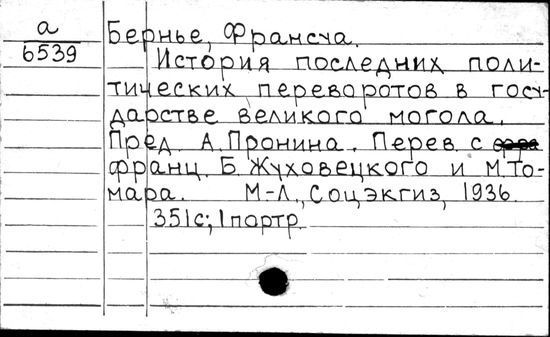 а
6539
Бернье, Франсуа.
История последних поли-
тических переворотов в госу-
дарстве великого могола.
Пред. А. Пронина. Перев. с
франц. Б. Жуховецкого и М. То-
мара. М-Л., Соцэкгиз, 1936.
351с; 1портр.